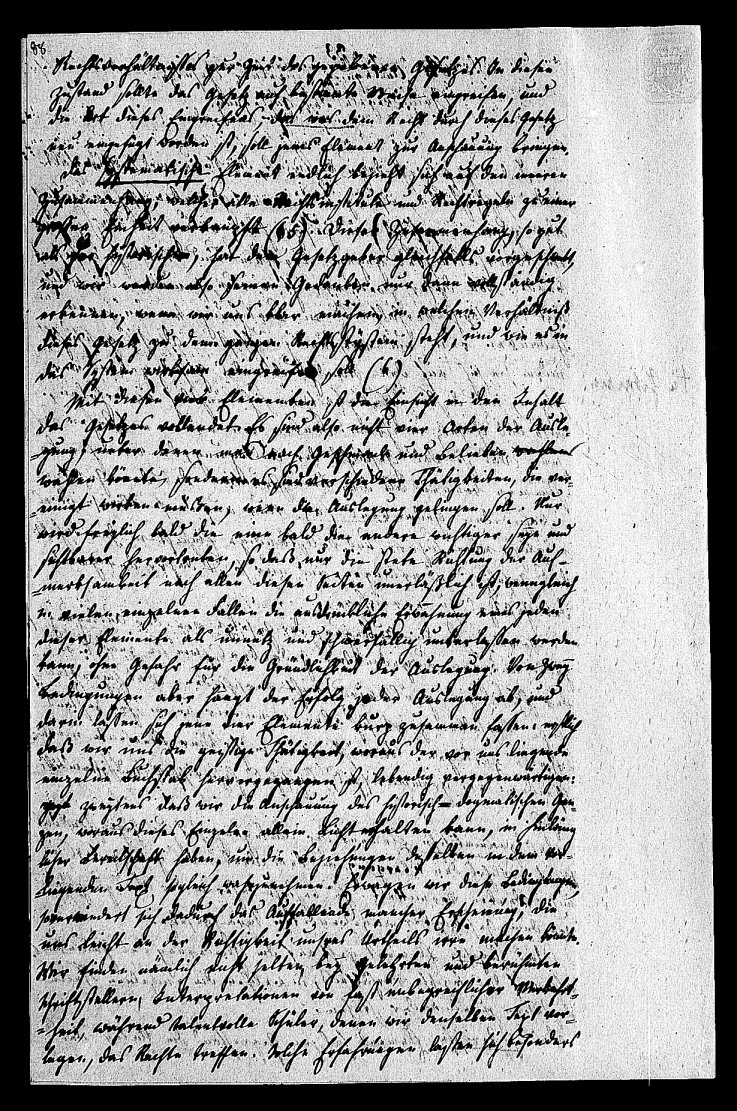 88
Rechtsverhältnisses zur Zeit des gegebenen Gesetzes. In diesen
Zustand sollte das Gesetz auf bestimmte Weise eingreifen, und
die Art dieses Eingreifens, das was dem Recht durch dieses Gesetz
neu eingefügt worden ist, soll jenes Element zur Anschauung bringen.
Das systematische Element endlich bezieht sich auf den inneren
Zusammenhang, welcher alle Rechtsinstitute und Rechtsregeln zu einer
großen Einheit verknüpft (§ 5). Dieser Zusammenhang, so gut
als der historische, hat dem Gesetzgeber gleichfalls vorgeschwebt,
und wir werden also seinen Gedanken nur dann vollständig
erkennen, wenn wir uns klar machen, in welchem Verhältniß
dieses Gesetz zu dem ganzen Rechtssystem steht, und wie es in
das System wirksam eingreifen soll (b).
Mit diesen vier Elementen ist die Einsicht in den Inhalt
des Gesetzes vollendet. Es sind also nicht vier Arten der Ausle-
gung, unter denen man nach Geschmack und Belieben
wählen könnte, sondern es sind verschiedene Thätigkeiten, die ver-
einigt wirken müssen, wenn die Auslegung gelingen soll. Nur
wird freylich bald die eine bald die andere wichtiger seyn und
sichtbarer hervortreten, so daß nur die stete Richtung der Auf-
merksamkeit nach allen diesen Seiten unerläßlich ist, wenngleich
in vielen einzelnen Fällen die ausdrückliche Erwähnung eines jeden
dieser Elemente als unnütz und schwerfällig unterlassen werden
kann, ohne Gefahr für die Gründlichkeit der Auslegung. Von zwey
Bedingungen aber hängt der Erfolg jeder Auslegung ab, und
darin lassen sich jene vier Elemente kurz zusammen fassen: erstlich
daß wir uns die geistige Thätigkeit, woraus der vor uns liegende
einzelne Buchstab hervorgegangen ist, lebendig vergegenwärtigen:
zweytens daß wir die Anschauung des historisch-dogmatischen Gan-
zen, woraus dieses Einzelne allein Licht erhalten kann, in hinläng-
licher Bereitschaft haben, um die Beziehungen desselben in dem vor-
liegenden Text sogleich wahrzunehmen. Erwägen wir diese Bedingungen,
so vermindert sich dadurch das Auffallende mancher Erscheinung, die
uns leicht an der Richtigkeit unsres Urtheils irre machen könnte.
Wir finden nämlich nicht selten bey gelehrten und berühmten
Schriftstellern Interpretationen von fast unbegreiflicher Verkehrt-
heit, während talentvolle Schüler, denen wir denselben Text vor-
legen, das Rechte treffen. Solche Erfahrungen lassen sich besonders